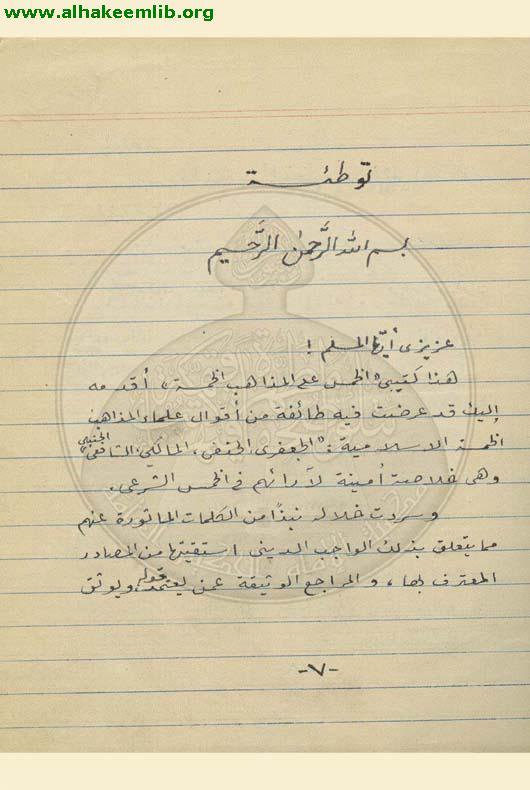 www.alhakeemlib.org
توطئة
بسم الله الرَّحمٰن الرَّحيم
عزيزي أيّها المسلم !
هذا كتيبي "الخمس على المذاهب الخمسة" أقدمه
إليك قد عرضت فيه طائفة من أقوال علماء المذاهب
الخمسة الاسلامية : "الجعفري، الحنفي، المالكي، الشافعي، الحنبلي"
وهي خلاصة أمينة لآرائهم في الخمس الشرعي.
وسردت خلاله نبذًا من الكلمات المأثورة عنهم
مما يتعلق بذلك الواجب الديني استقيتها من المصادر
المعترف بها، والمراجع الوثيقة عمن يعتمد قوله، ويوثق
-٧-